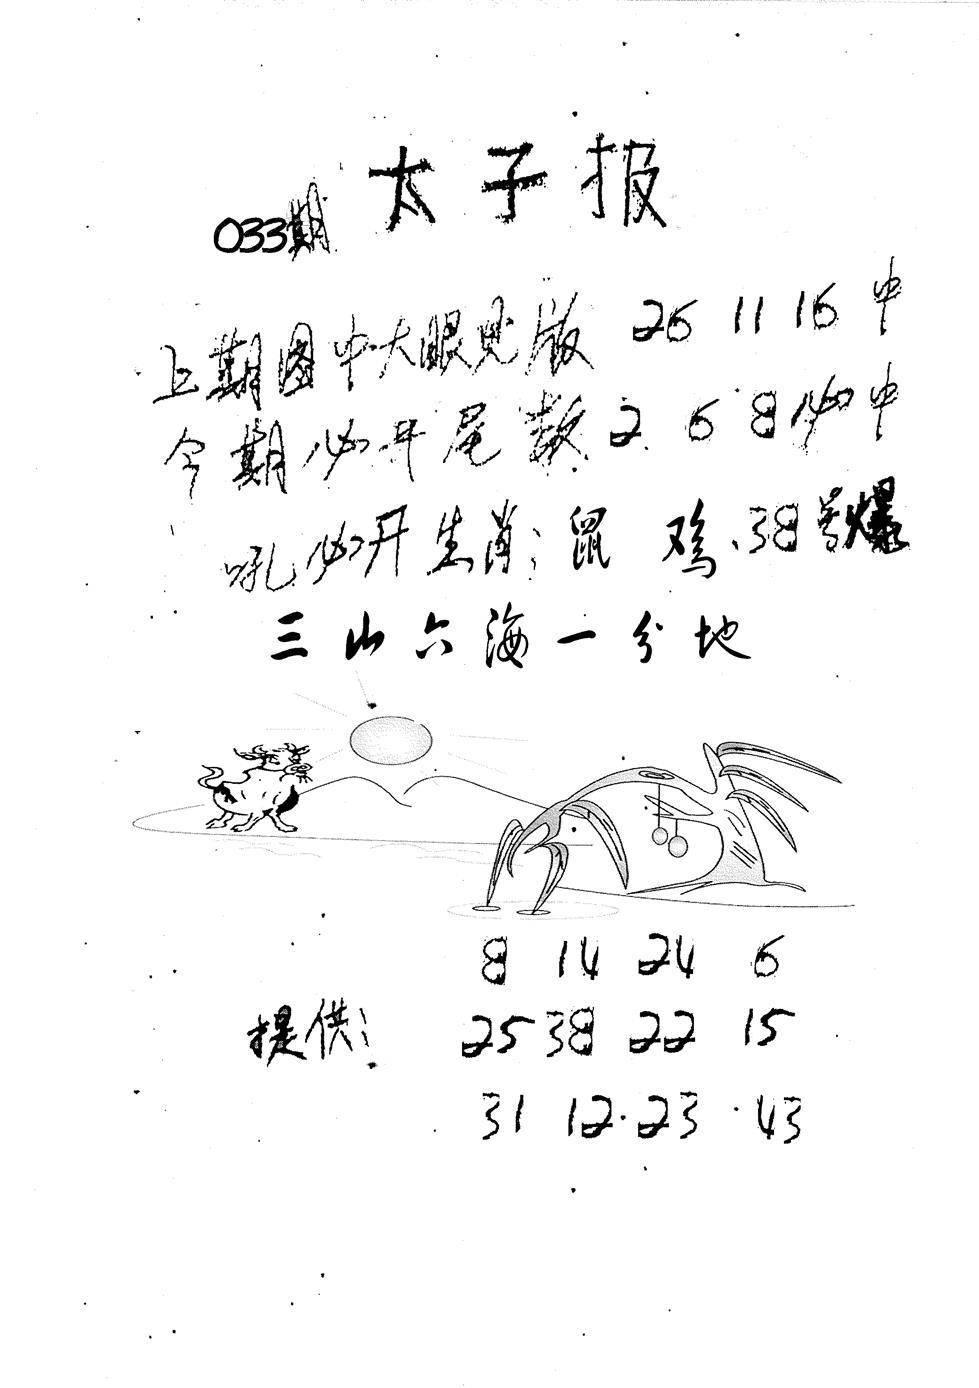 太子报
033期
上期图中大眼见版 26 11 16 中
今期必开尾数 2 6 8 必中
吼必开生肖:鼠 鸡、38号爆
三山六海一分地
8 14 24 6
提供: 25 38 22 15
31 12·23·43